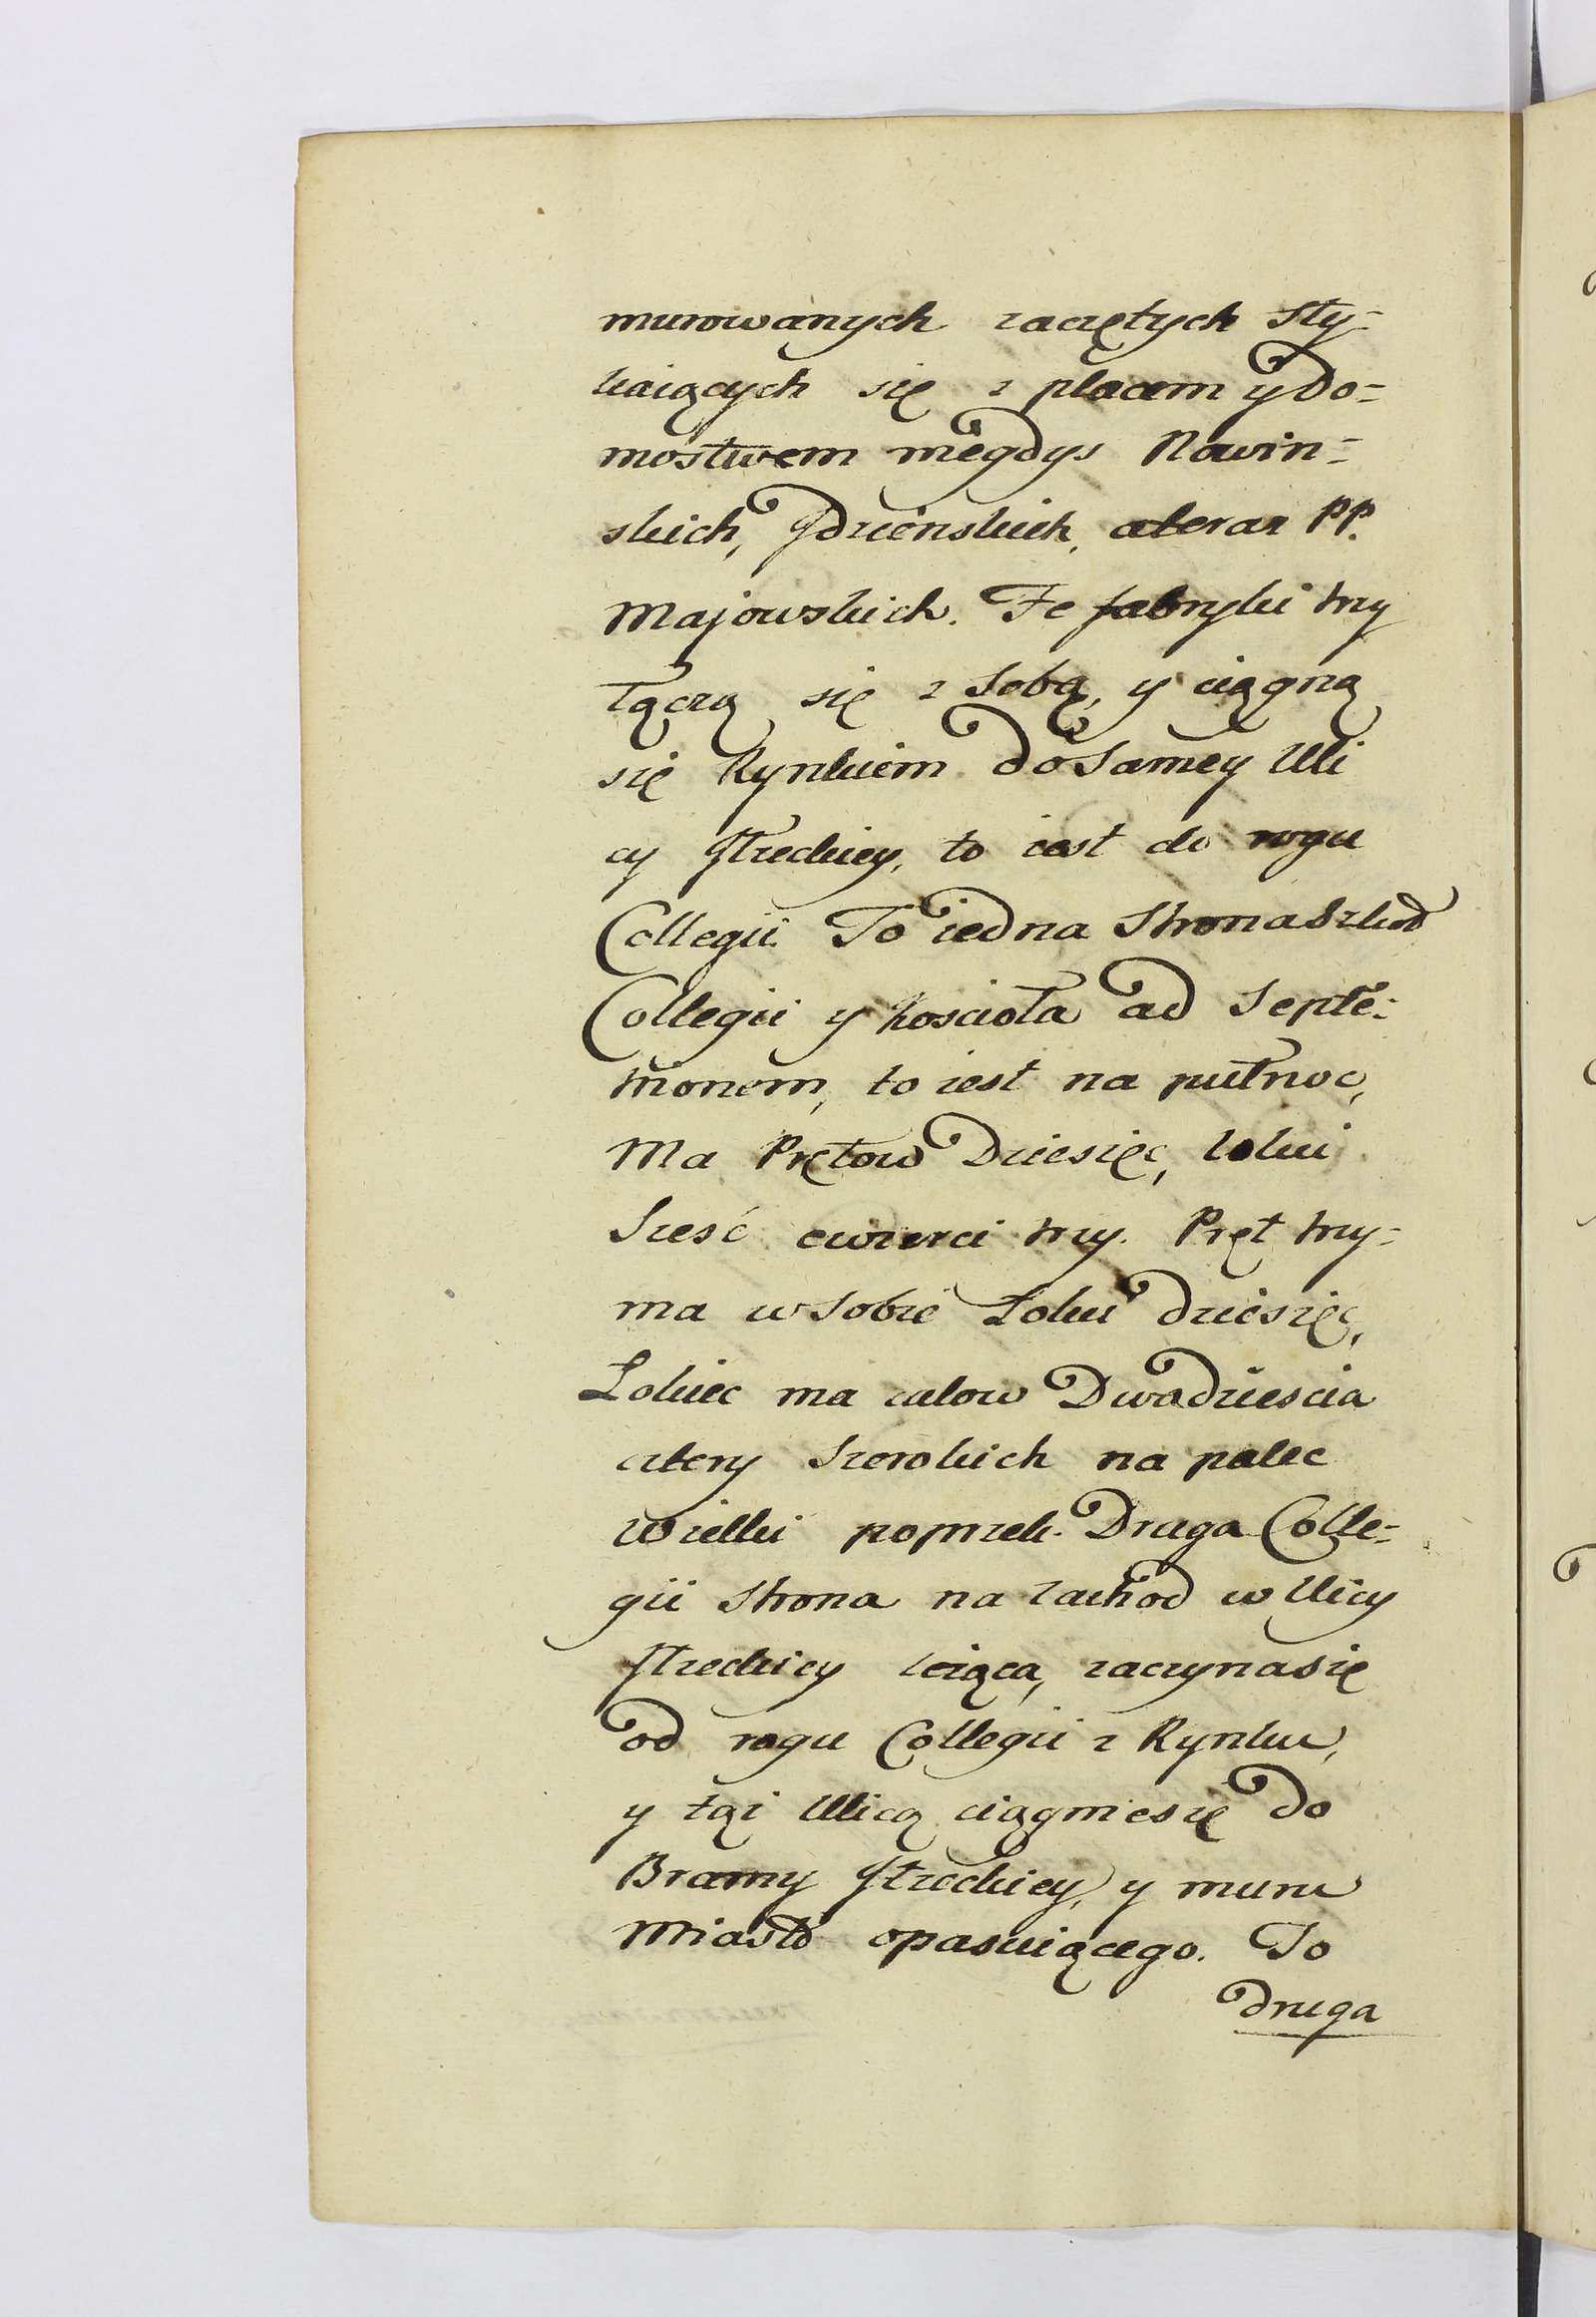 murowanych zaczętych sty-
kaiących się z placem y do-
mostwem niegdys Rowin-
skich, Jdzienskich, ateraz PP.
Majowskich. Te fabryki trzy
łączą się z sobą, y ciągną
się Rynkiem do samey Uli
cy Grodzkiey, to iest do rogu
Collegii. To iedna strona Szkoł
Collegii y Koscioła ad Septe-
trionem, to iest na pułnoc,
Ma Prętow Dziesięc, lokci
Szesć cwierci trzy. Pręt trzy-
ma w sobie Łokci dziesięc,
Łokiec ma calow Dwadziescia
cztery szerokich na palec
wielki poprzek. Druga Colle-
gii strona na zachod w Ulicy
leząca, zaczyna się
od rogu Collegii z Rynku,
y tąż Ulicą ciągnie się do
Bramy y muru
Miasto opasuiącego. To
druga